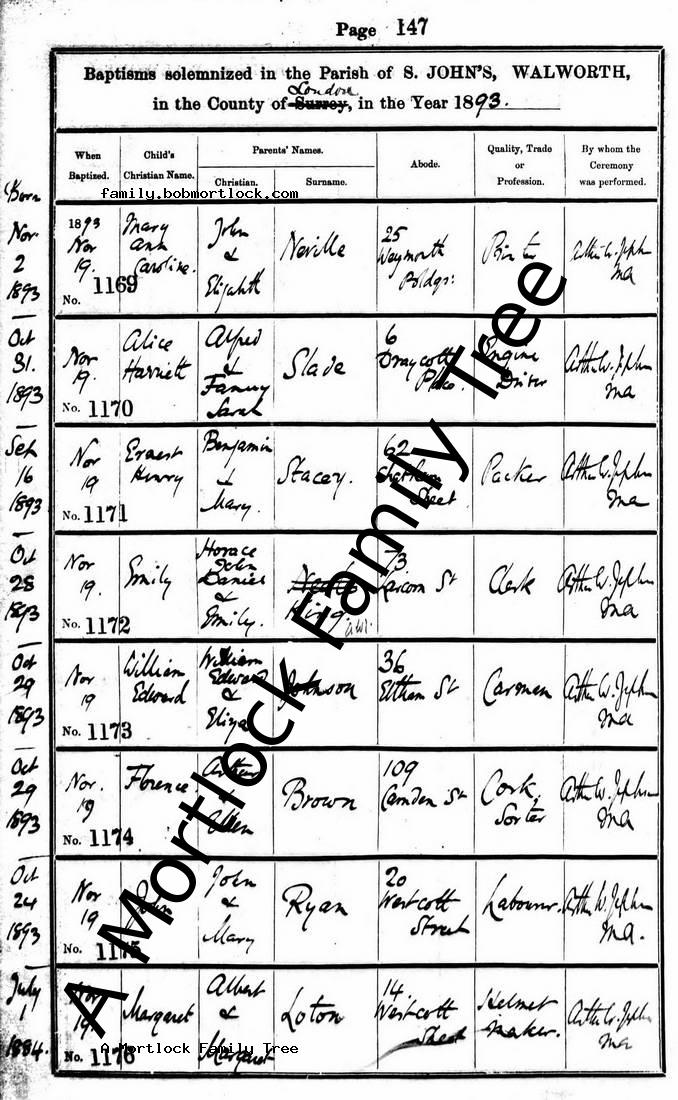 Page 147
Baptisms solemnized in the Parish of S. JOHN'S, WALWORTH,
London
in the County of Surrey, in the Year 1893.
When Baptized.
Child's Christian Name.
Parents' Names.
Christian.
Surname.
Abode.
Quality, Trade or Profession.
By whom the Ceremony was performed.
family.bobmortlock.com
Born
Nov. 2 1893
1893 Nov 19.
No. 1169
Mary Ann Caroline.
John & Elizabeth
Neville
25 Weymouth Bldgs:
Arthur W. Jephson MA
Oct 31. 1893
Nov 19.
No. 1170
Alice Harriett
Alfred & Sarah
Slade
6 Draycott Place.
Engine Driver
Arthur W. Jephson MA
Sep 16 1893
Nov 19
No. 1171
Ernest Henry
Benjamin & Mary.
Stacey.
62 Chatham Street
Packer
Arthur W. Jephson MA
Oct 28 1893
Nov 19.
No. 1172
Emily
Horace John Daniel & Emily.
King.
73 St
Clerk
Arthur W. Jephson MA
Oct 29 1893
Nov 19
No. 1173
William Edward
William Edward & Eliza
Johnson
36 Eltham St
Carman
Arthur W. Jephson MA
Oct 29 1893
Nov. 19
No. 1174
Florence.
Arthur & Ellen
Brown
109 Camden St
Cork Sorter
Arthur W. Jephson MA
Oct 24 1893
Nov 19
No. 1175
John
John & Mary
Ryan
20 Westcott Street
Labourer.
Arthur W. Jephson MA.
July 1 1884.
Nov 19.
No. 1176
Margaret
Albert & Margaret
Loton
14. Westcott Street
Helmet maker.
Arthur W. Jephson MA
A Mortlock Family Tree
A Mortlock Family Tree